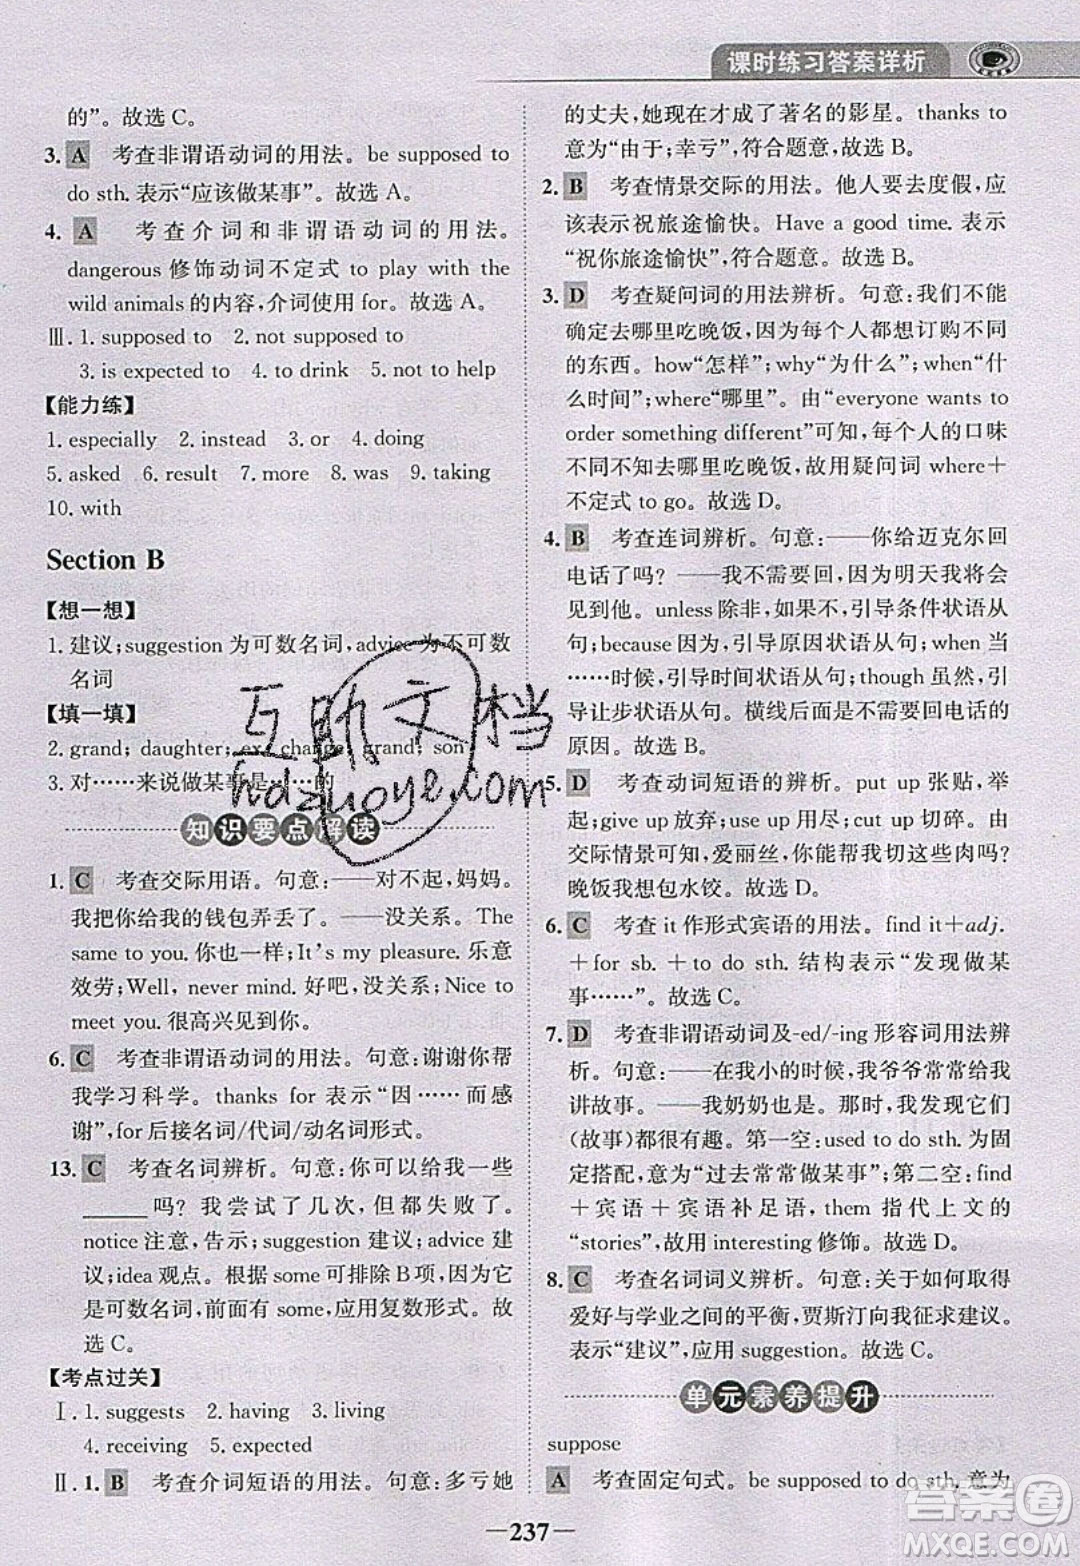 课时练习答案详析
的”。故选 C。
3. A 考查非谓语动词的用法。be supposed to
do sth. 表示“应该做某事”。故选 A。
4. A 考查介词和非谓语动词的用法。
dangerous 修饰动词不定式 to play with the
wild animals 的内容,介词使用 for。故选 A。
Ⅲ. 1. supposed to 2. not supposed to
3. is expected to 4. to drink 5. not to help
【能力练】
1. especially 2. instead 3. or 4. doing
5. asked 6. result 7. more 8. was 9. taking
10. with
Section B
【想一想】
1. 建议;suggestion 为可数名词,advice 为不可数
名词
【填一填】
2. grand; daughter; ex; change; grand; son
3. 对……来说做某事是……的
知识要点解读
1. C 考查交际用语。句意:——对不起,妈妈。
我把你给我的钱包弄丢了。——没关系。The
same to you. 你也一样;It's my pleasure. 乐意
效劳;Well, never mind. 好吧,没关系;Nice to
meet you. 很高兴见到你。
6. C 考查非谓语动词的用法。句意:谢谢你帮
我学习科学。thanks for 表示“因……而感
谢”,for 后接名词/代词/动名词形式。
13. C 考查名词辨析。句意:你可以给我一些
______吗? 我尝试了几次,但都失败了。
notice 注意,告示;suggestion 建议;advice 建
议;idea 观点。根据 some 可排除 B 项,建议
是可数名词,前面有 some,应用复数形式。故
选 C。
【考点过关】
Ⅰ. 1. suggests 2. having 3. living
4. receiving 5. expected
Ⅱ. 1. B 考查介词短语的用法。句意:多亏她
的丈夫,她现在才成了著名的影星。thanks to
意为“由于;幸亏”,符合题意,故选 A。
2. B 考查情景交际的用法。他人要去度假,应
该表示祝旅途愉快。Have a good time. 表示
“祝你旅途愉快”,符合题意。故选 B。
3. D 考查疑问词的用法辨析。句意:我们不能
确定去哪里吃晚饭,因为每个人都想订购不同
的东西。how“怎样”;why“为什么”;when“什
么时间”;where“哪里”。由“everyone wants to
order something different”可知,每个人的口味
不同不知去哪里吃晚饭,故用疑问词 where+
不定式 to go。故选 D。
4. B 考查连词辨析。句意:——你给迈克尔回
电话了吗? ——我不需要回,因为明天我将会
见到他。unless 除非,如果不,引导条件状语从
句;because 因为,引导原因状语从句;when 当
……时候,引导时间状语从句;though 虽然,引
导让步状语从句。横线后面是不需要回电话的
原因。故选 B。
5. D 考查动词短语的辨析。put up 张贴,举
起;give up 放弃;use up 用尽;cut up 切碎。由
交际情景可知,爱丽丝,你能帮我切这些肉吗?
晚饭我想包水饺。故选 D。
6. C 考查 it 作形式宾语的用法。find it+adj.
+for sb. +to do sth. 结构表示“发现做某
事……”。故选 C。
7. D 考查非谓语动词及-ed/-ing 形容词用法辨
析。句意:——在我小的时候,我爷爷常常给我
讲故事。——我奶奶也是。那时,我发现它们
(故事)都很有趣。第一空:used to do sth. 为固
定搭配,意为“过去常常做某事”;第二空:find
+宾语+宾语补足语,them 指代上文的
“stories”,故用 interesting 修饰。故选 D。
8. C 考查名词词义辨析。句意:关于如何取得
爱好与学业之间的平衡,贾斯汀向我征求建议。
表示“建议”,应用 suggestion。故选 C。
单元素养提升
suppose
A 考查固定句式。be supposed to do sth. 意为
237
互助文档
hdzuoye.com
答案圈
MXQE.COM